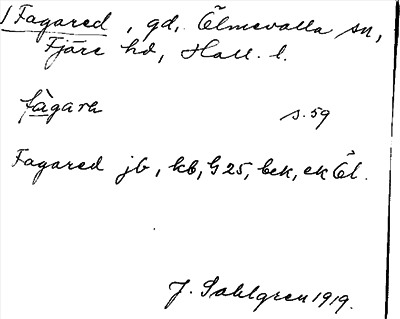 1 Fagared, gd, Ölmevalla sn,
Fjäre hd, Hall. l.
fàgarɑ s. 59
Fagared jb, kb, G 25, bek, ek Öl.
J. Sahlgren 1919.